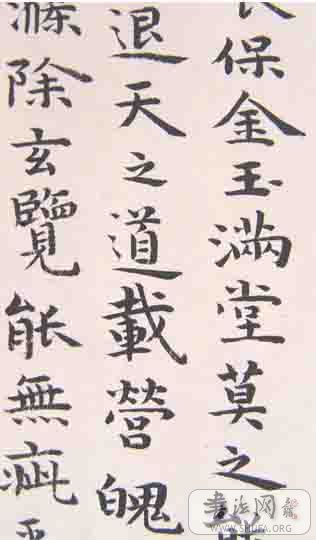 保金玉滿堂莫之
退天之道載營魄
滌除玄覽能無疵
书法网
WWW.SHUFA.ORG